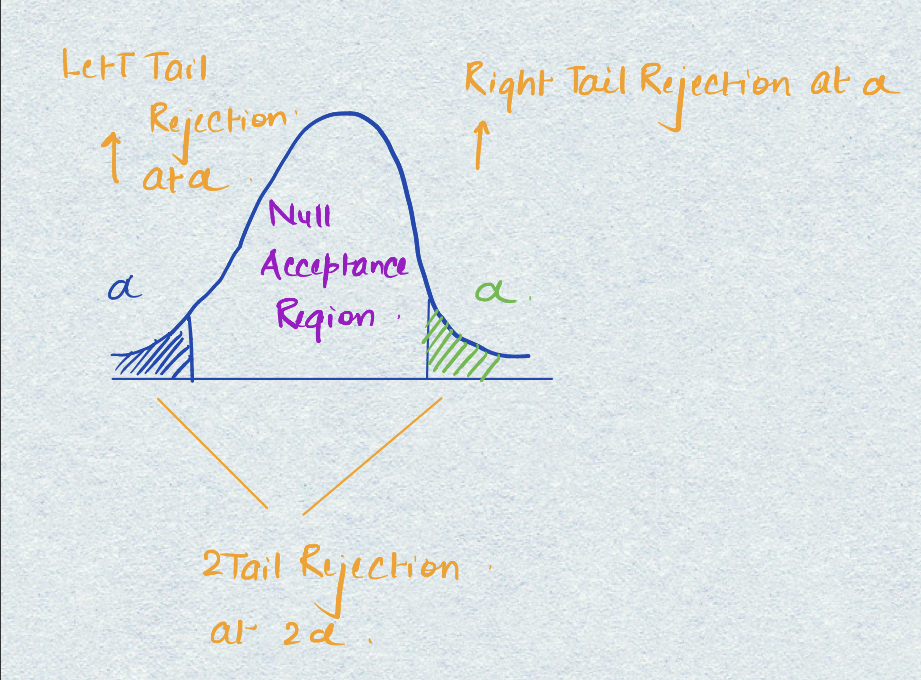 Left Tail
Rejection
at α
Right Tail Rejection at α
Null
Acceptance
Region
α
α
2 Tail Rejection
at 2α